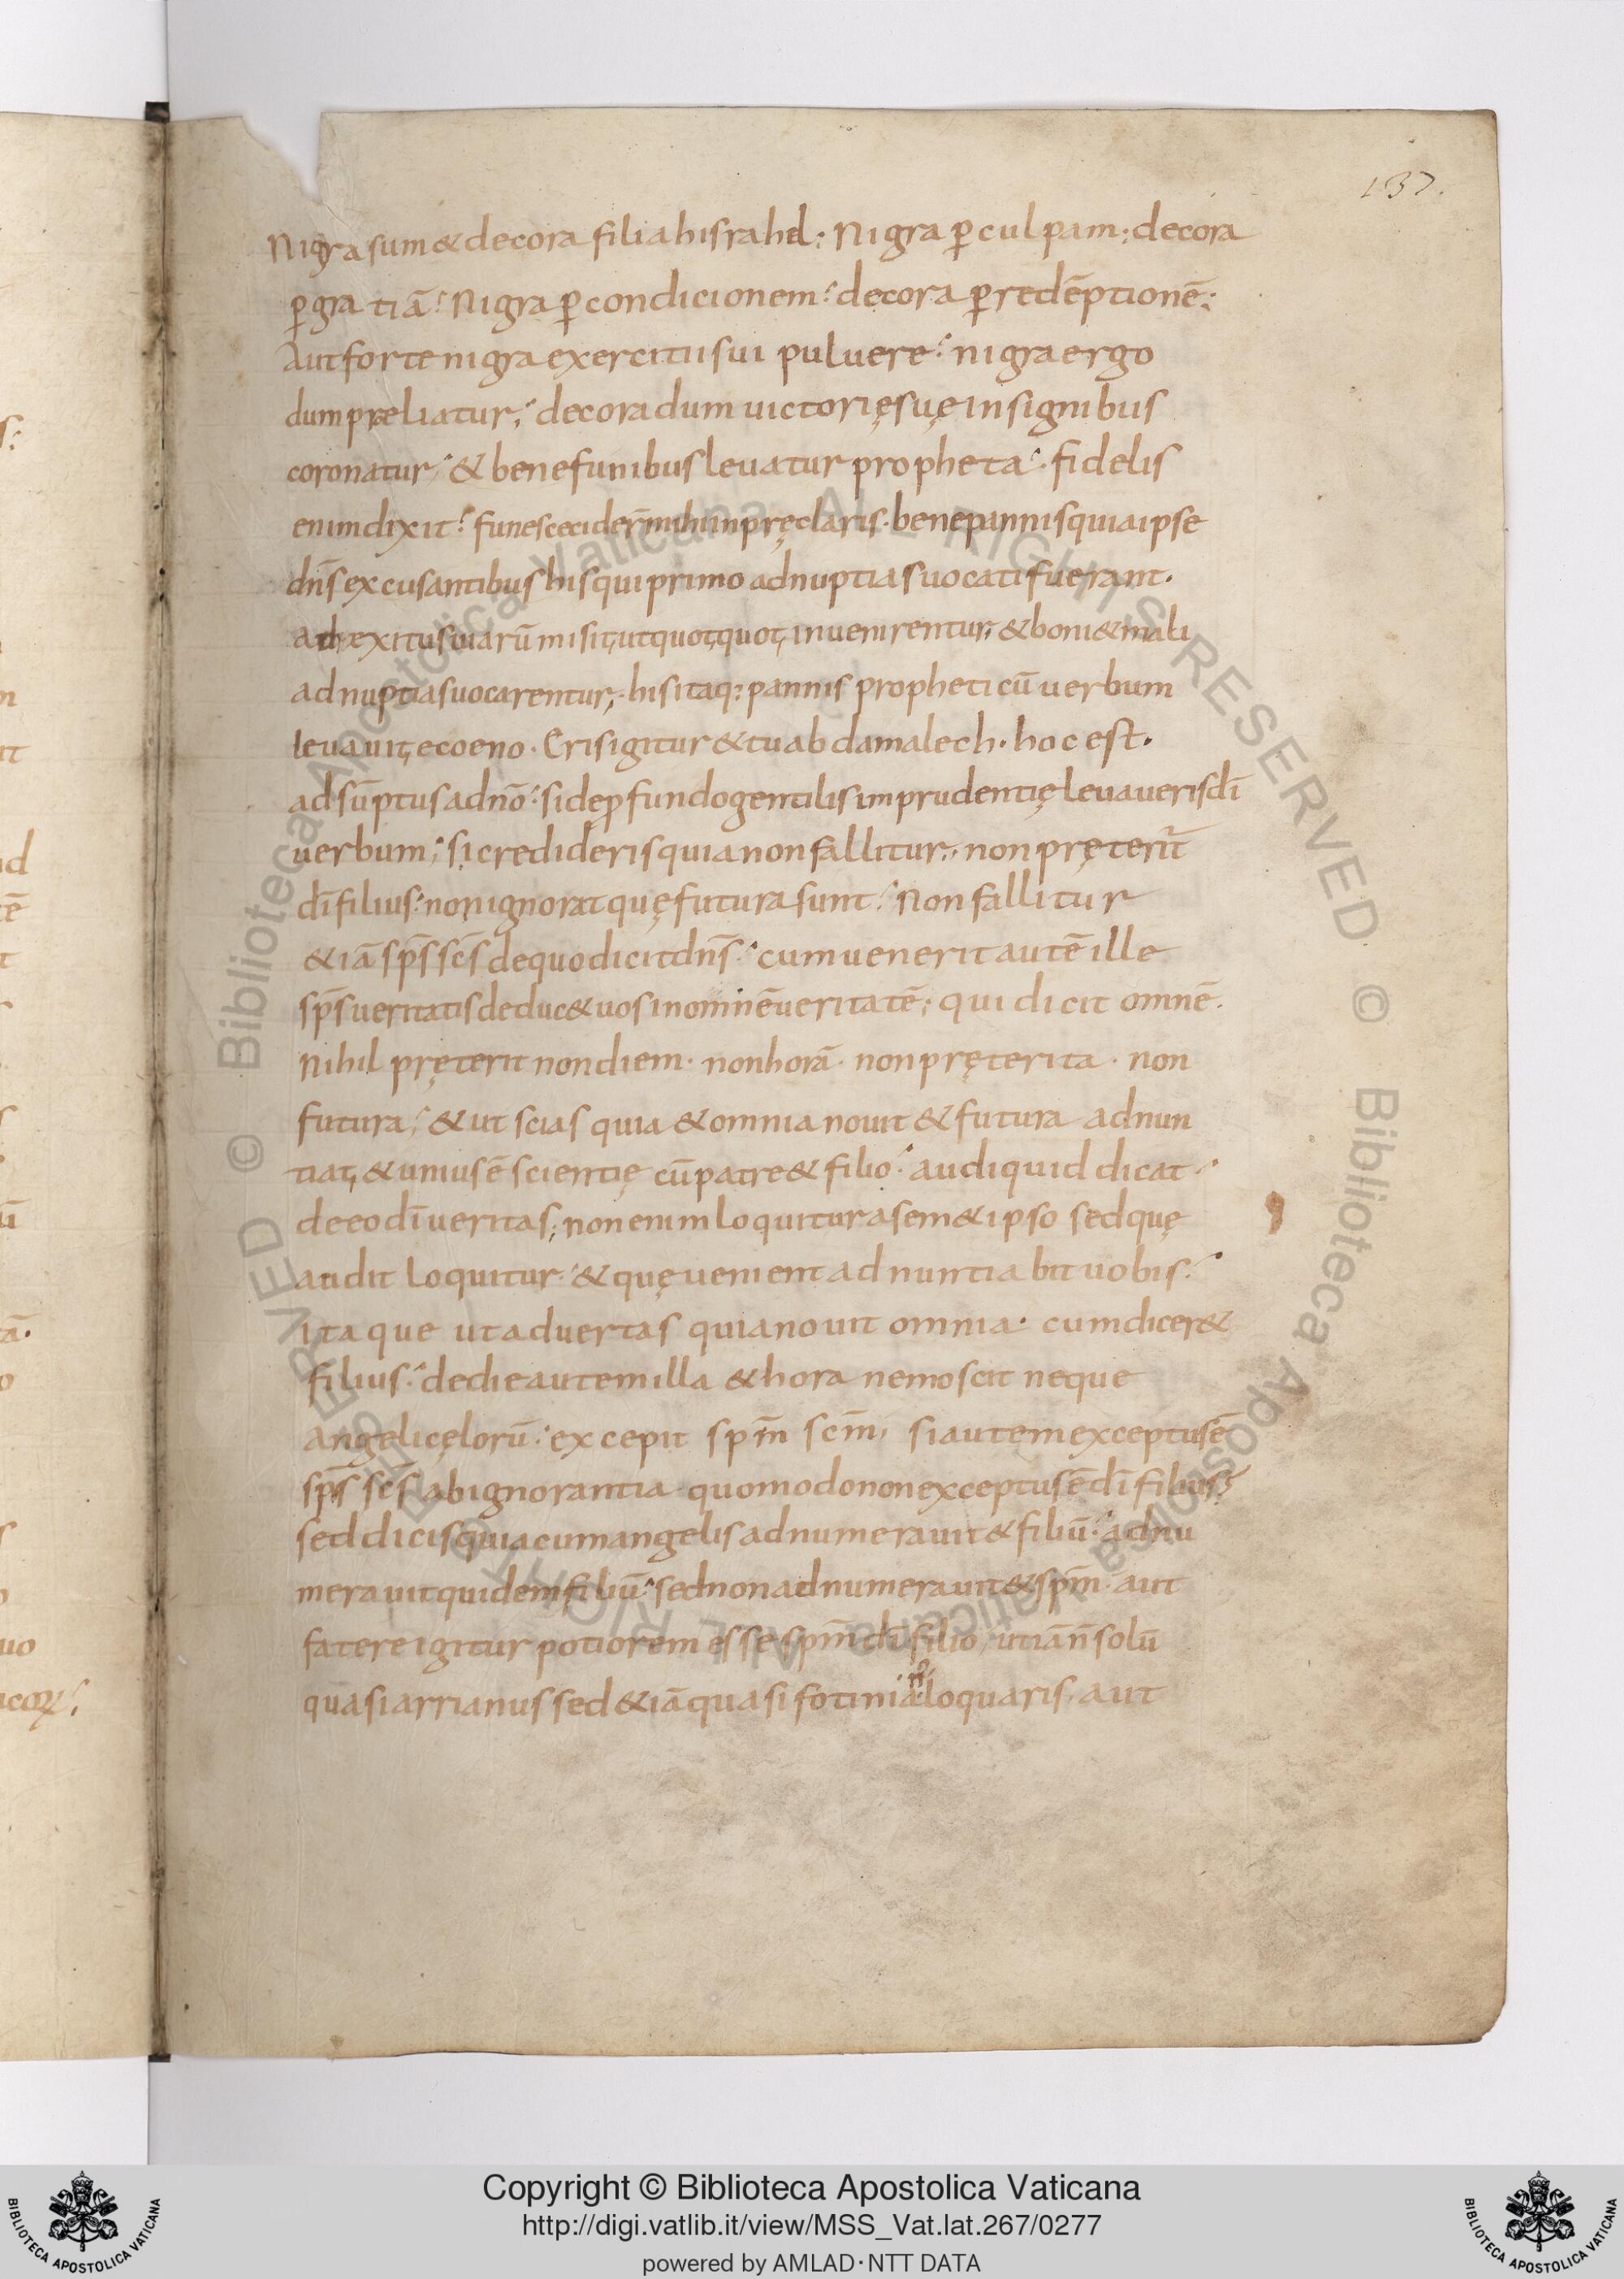 137.
Nigra sum & decora filia hisrahel; Nigra ꝑ culpam; decora
ꝑ gratiā; Nigra ꝑ condicionem; decora ꝑ redēptionē;
Aut forte nigra exercitii sui puluere; nigra ergo
dum preliatur; decora dum uictorię suę insignibus
coronatur; & bene funibus leuatur propheta; fidelis
enim dixit; funes ceciderꝫ mihi in pręclaris. bene pannis quia ipse
dn̄s excusantibus his qui primo ad nuptias uocati fuerant.
ad exitus uiarū misit, ut quotquot inuenirentur, & boni & mali
ad nuptias uocarentur; his itaq; pannis propheticū uerbum
leuauit e coeno. Eris igitur & tu abdamalech. hoc est.
adsūptus a dn̄o; si de ꝓfundo gentilis imprudentię leuaueris dī
uerbum; si credideris quia non fallitur, non pręterit̄
dī filius; non ignorat quę futura sunt; Non fallitur
&iā sp̄s sc̄s de quo dicit dn̄s; cum uenerit autē ille
sp̄s ueritatis deduc& uos in omnē ueritatē; qui dicit omnē.
Nihil pręterit non diem. non horā. non pręterita. non
futura; & ut scias quia & omnia nouit & futura adnun
tiat, & unius ē scientię cū patre & filio; audi quid dicat;
de eo dī ueritas; non enim loquitur a sem&ipso sed quę
audit loquitur; & quę uenient adnuntiabit uobis;
itaque ut aduertas quia nouit omnia. cum dicer&
filius; de die autem illa & hora nemo scit neque
angeli cęlorū; excepit sp̄m sc̄m, si autem exceptus ē
sp̄s sc̄s ab ignorantia quomodo non exceptus ē dī filius?
sed dicis quia cum angelis adnumerauit & filiū; adnu
merauit quidem filiū; sed non adnumerauit & sp̄m. aut
fatere igitur potiorem esse sp̄m dī filio, ut iā n̄ solū
quasi arrianus sed &iā quasi fotinia nꝰ loquaris, aut
Copyright © Biblioteca Apostolica Vaticana
http://digi.vatlib.it/view/MSS_Vat.lat.267/0277
powered by AMLAD · NTT DATA
BIBLIOTECA APOSTOLICA VATICANA
BIBLIOTECA APOSTOLICA VATICANA